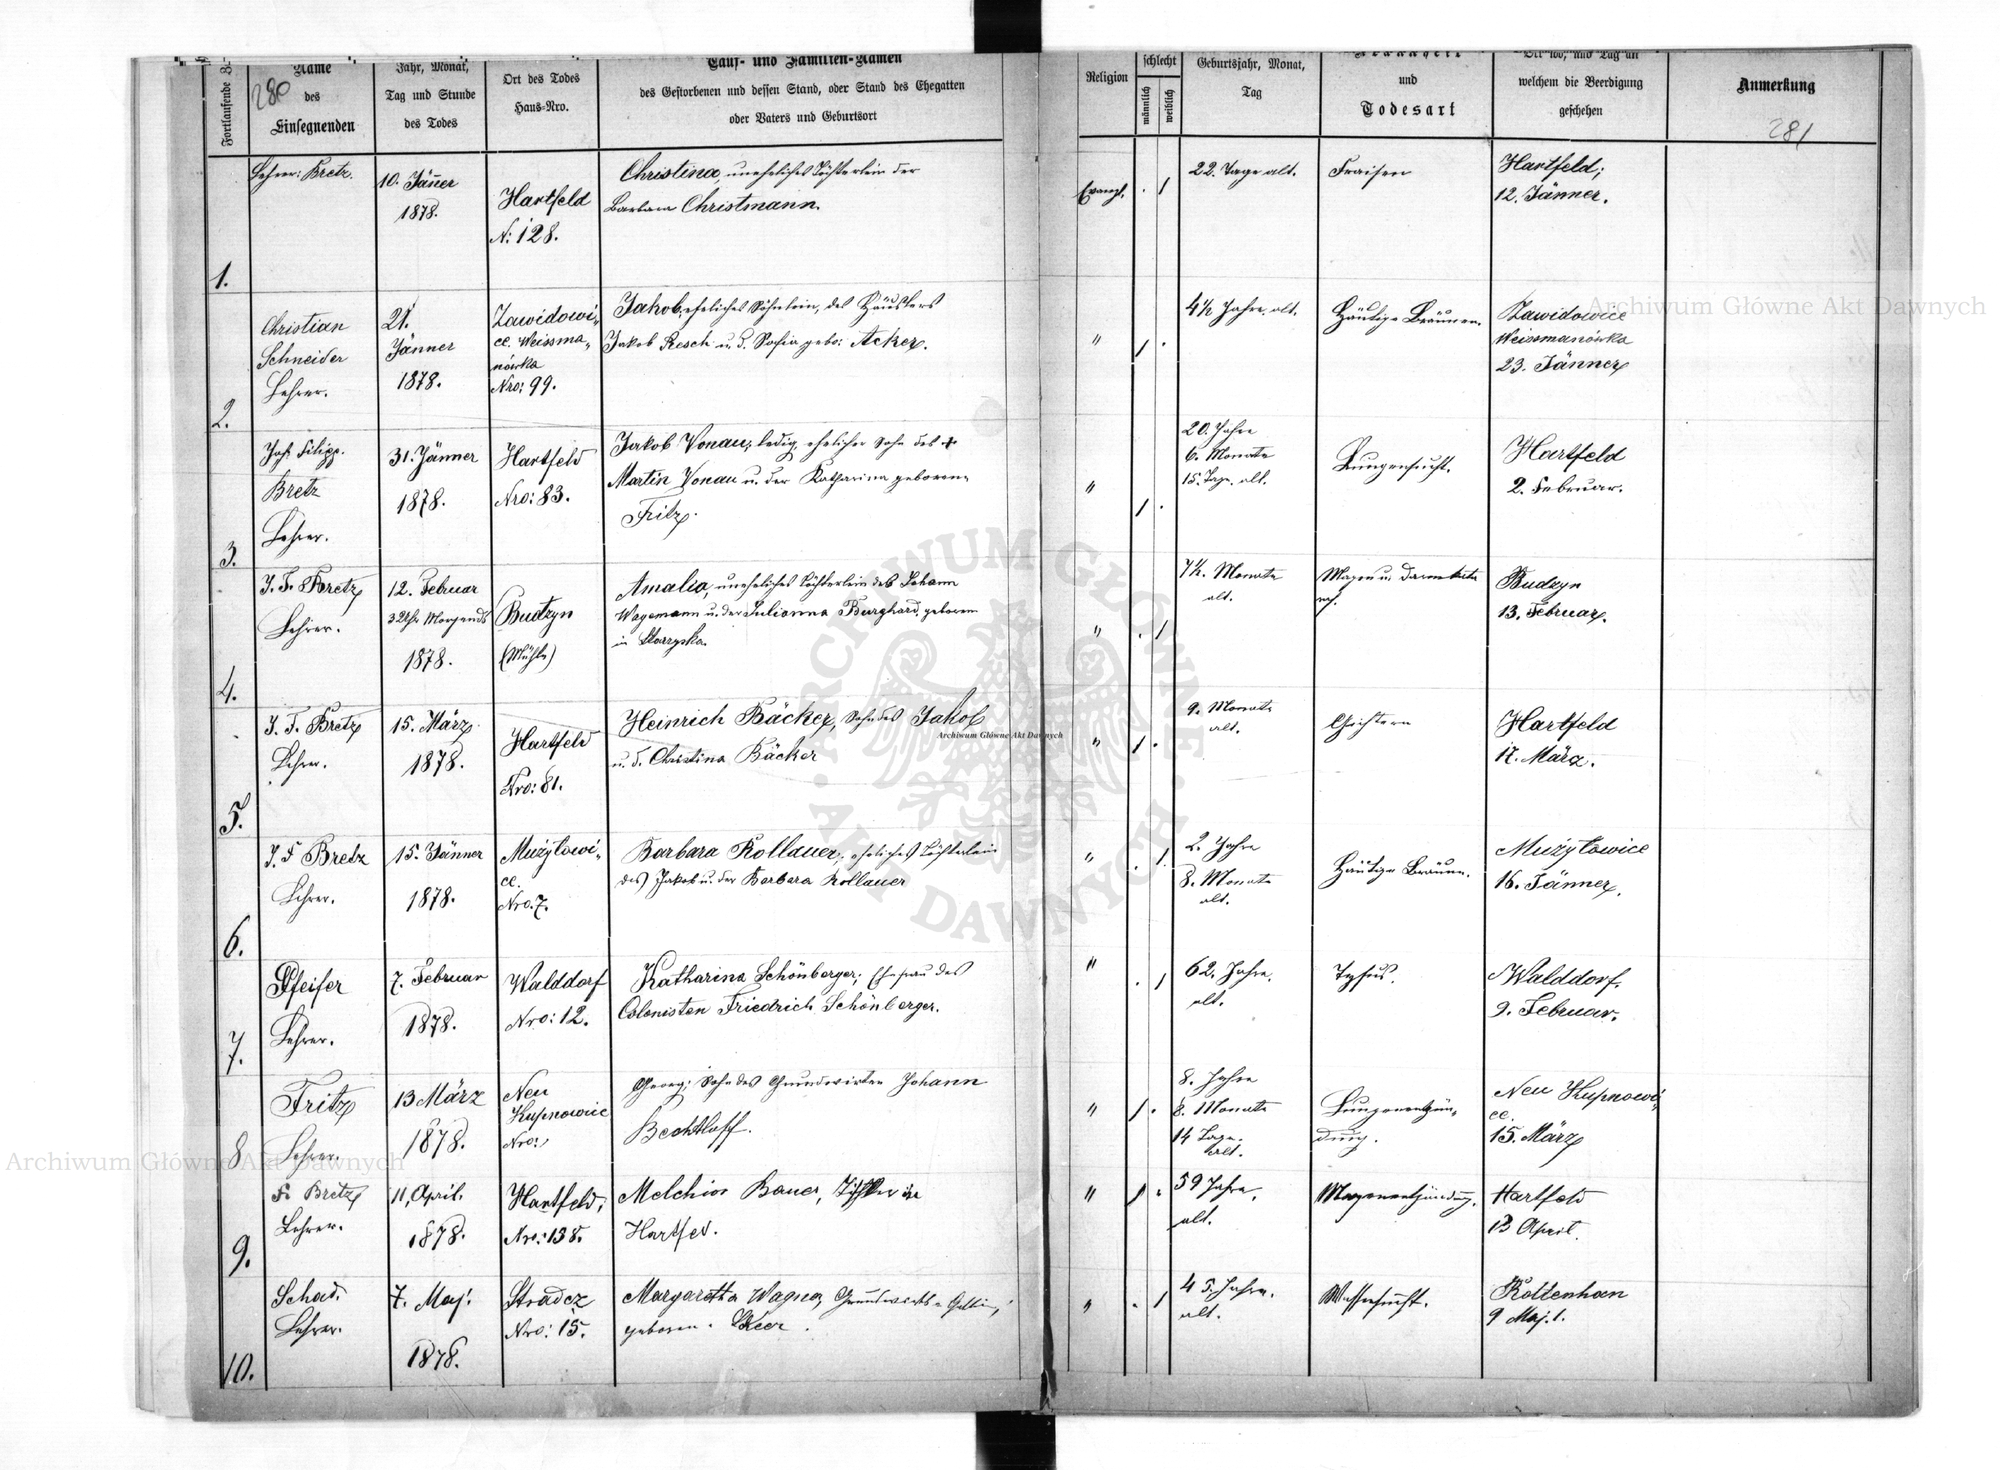 280
Fortlaufende Z.
Name
des
Einsegnenden
Jahr, Monat,
Tag und Stunde
des Todes
Ort des Todes
Haus-Nro.
Tauf- und Familien-Namen
des Gestorbenen und dessen Stand, oder Stand des Ehegatten
oder Vaters und Geburtsort
Religion
schlecht
männlich
weiblich
Geburtsjahr, Monat,
Tag
Krankheit
und
Todesart
Ort wo, und Tag an
welchem die Beerdigung
geschehen
Anmerkung
281
1.
Lehrer: Bretz.
10. Jäner
1878.
Hartfeld
N: 128.
Christina, uneheliches Töchterlein der
Barbara Christmann.
Evangl.
22. Tage alt.
Fraisen
Hartfeld;
12. Jänner.
2.
Christian
Schneider
Lehrer.
21.
Jänner
1878.
Zawidowi-
ce. Weissma-
nówka
Nro: 99.
Jakob, eheliches Söhnlein, des Häuslers
Jakob Resch u. d. Sofia gebo: Acker.
"
4½ Jahre. alt.
Häutige Bräunen.
Zawidowice
Weissmanówka
23. Jänner
3.
Joh. Filipp.
Bretz
Lehrer.
31. Jänner
1878.
Hartfeld
Nro: 83.
Jakob Vonau; ledig, ehelicher Sohn des +
Martin Vonau u. der Katharina geborene
Fritz.
"
20. Jahre
6. Monate
15. Tage. alt.
Lungensucht.
Hartfeld
2. Februar.
4.
J. F. Bretz
Lehrer.
12. Februar
3 Uhr Morgends
1878.
Budzyn
(Mühle)
Amalia, uneheliches Töchterlein des Johann
Wagemann u. der Julianna Burghard, geboren
in Starzyska.
"
7½. Monate
alt.
Magen u.
Budzyn
13. Februar.
5.
J. F. Bretz
Lehrer.
15. März
1878.
Hartfeld
Nro: 81.
Heinrich Bäcker, Sohn des Jakob
u. d. Christina Bäcker
"
9. Monate
alt.
Hartfeld
17. März.
6.
J. F Bretz
Lehrer.
15. Jänner
1878.
Mużyłowi-
ce.
Nro. 7.
Barbara Kollauer; eheliches Töchterlein
des Jakob u. der Barbara Kollauer
"
2. Jahre
8. Monate
alt.
Häutige Bräune.
Mużyłowice
16. Jänner.
7.
Pfeifer
Lehrer.
7. Februar
1878.
Walddorf
Nro: 12.
Katharina Schönberger; Ehefrau des
Colonisten Friedrich Schönberger.
"
62. Jahre.
alt.
Tyfus.
Walddorf.
9. Februar.
8
Fritz
Lehrer.
13 März
1878.
Neu
Kupnowice
Nro:
Georg; Sohn des Grundwirten Johann
Bechtloff.
"
8. Jahre
8. Monate
14 Tage.
alt.
Lungenentzün-
dung.
Neu Kupnowi-
ce.
15. März
9.
F. Bretz
Lehrer.
11. April.
1878.
Hartfeld;
Nro: 138.
Melchior Bauer, Tischler in
Hartfed.
"
59 Jahre.
alt.
Magenentzündung.
Hartfeld
13 April.
10.
Schad.
Lehrer.
7. Maj.
1878.
Stradcz
Nro: 15.
Margaretha Wagner, Grundwirts-Gattin;
geborene Keer.
"
45. Jahre.
alt.
Wassersucht.
Rottenhan
9 Maj. l.
Archiwum Główne Akt Dawnych
Archiwum Główne Akt Dawnych
Archiwum Główne Akt Dawnych
ARCHIWUM GŁÓWNE · AKT DAWNYCH ·